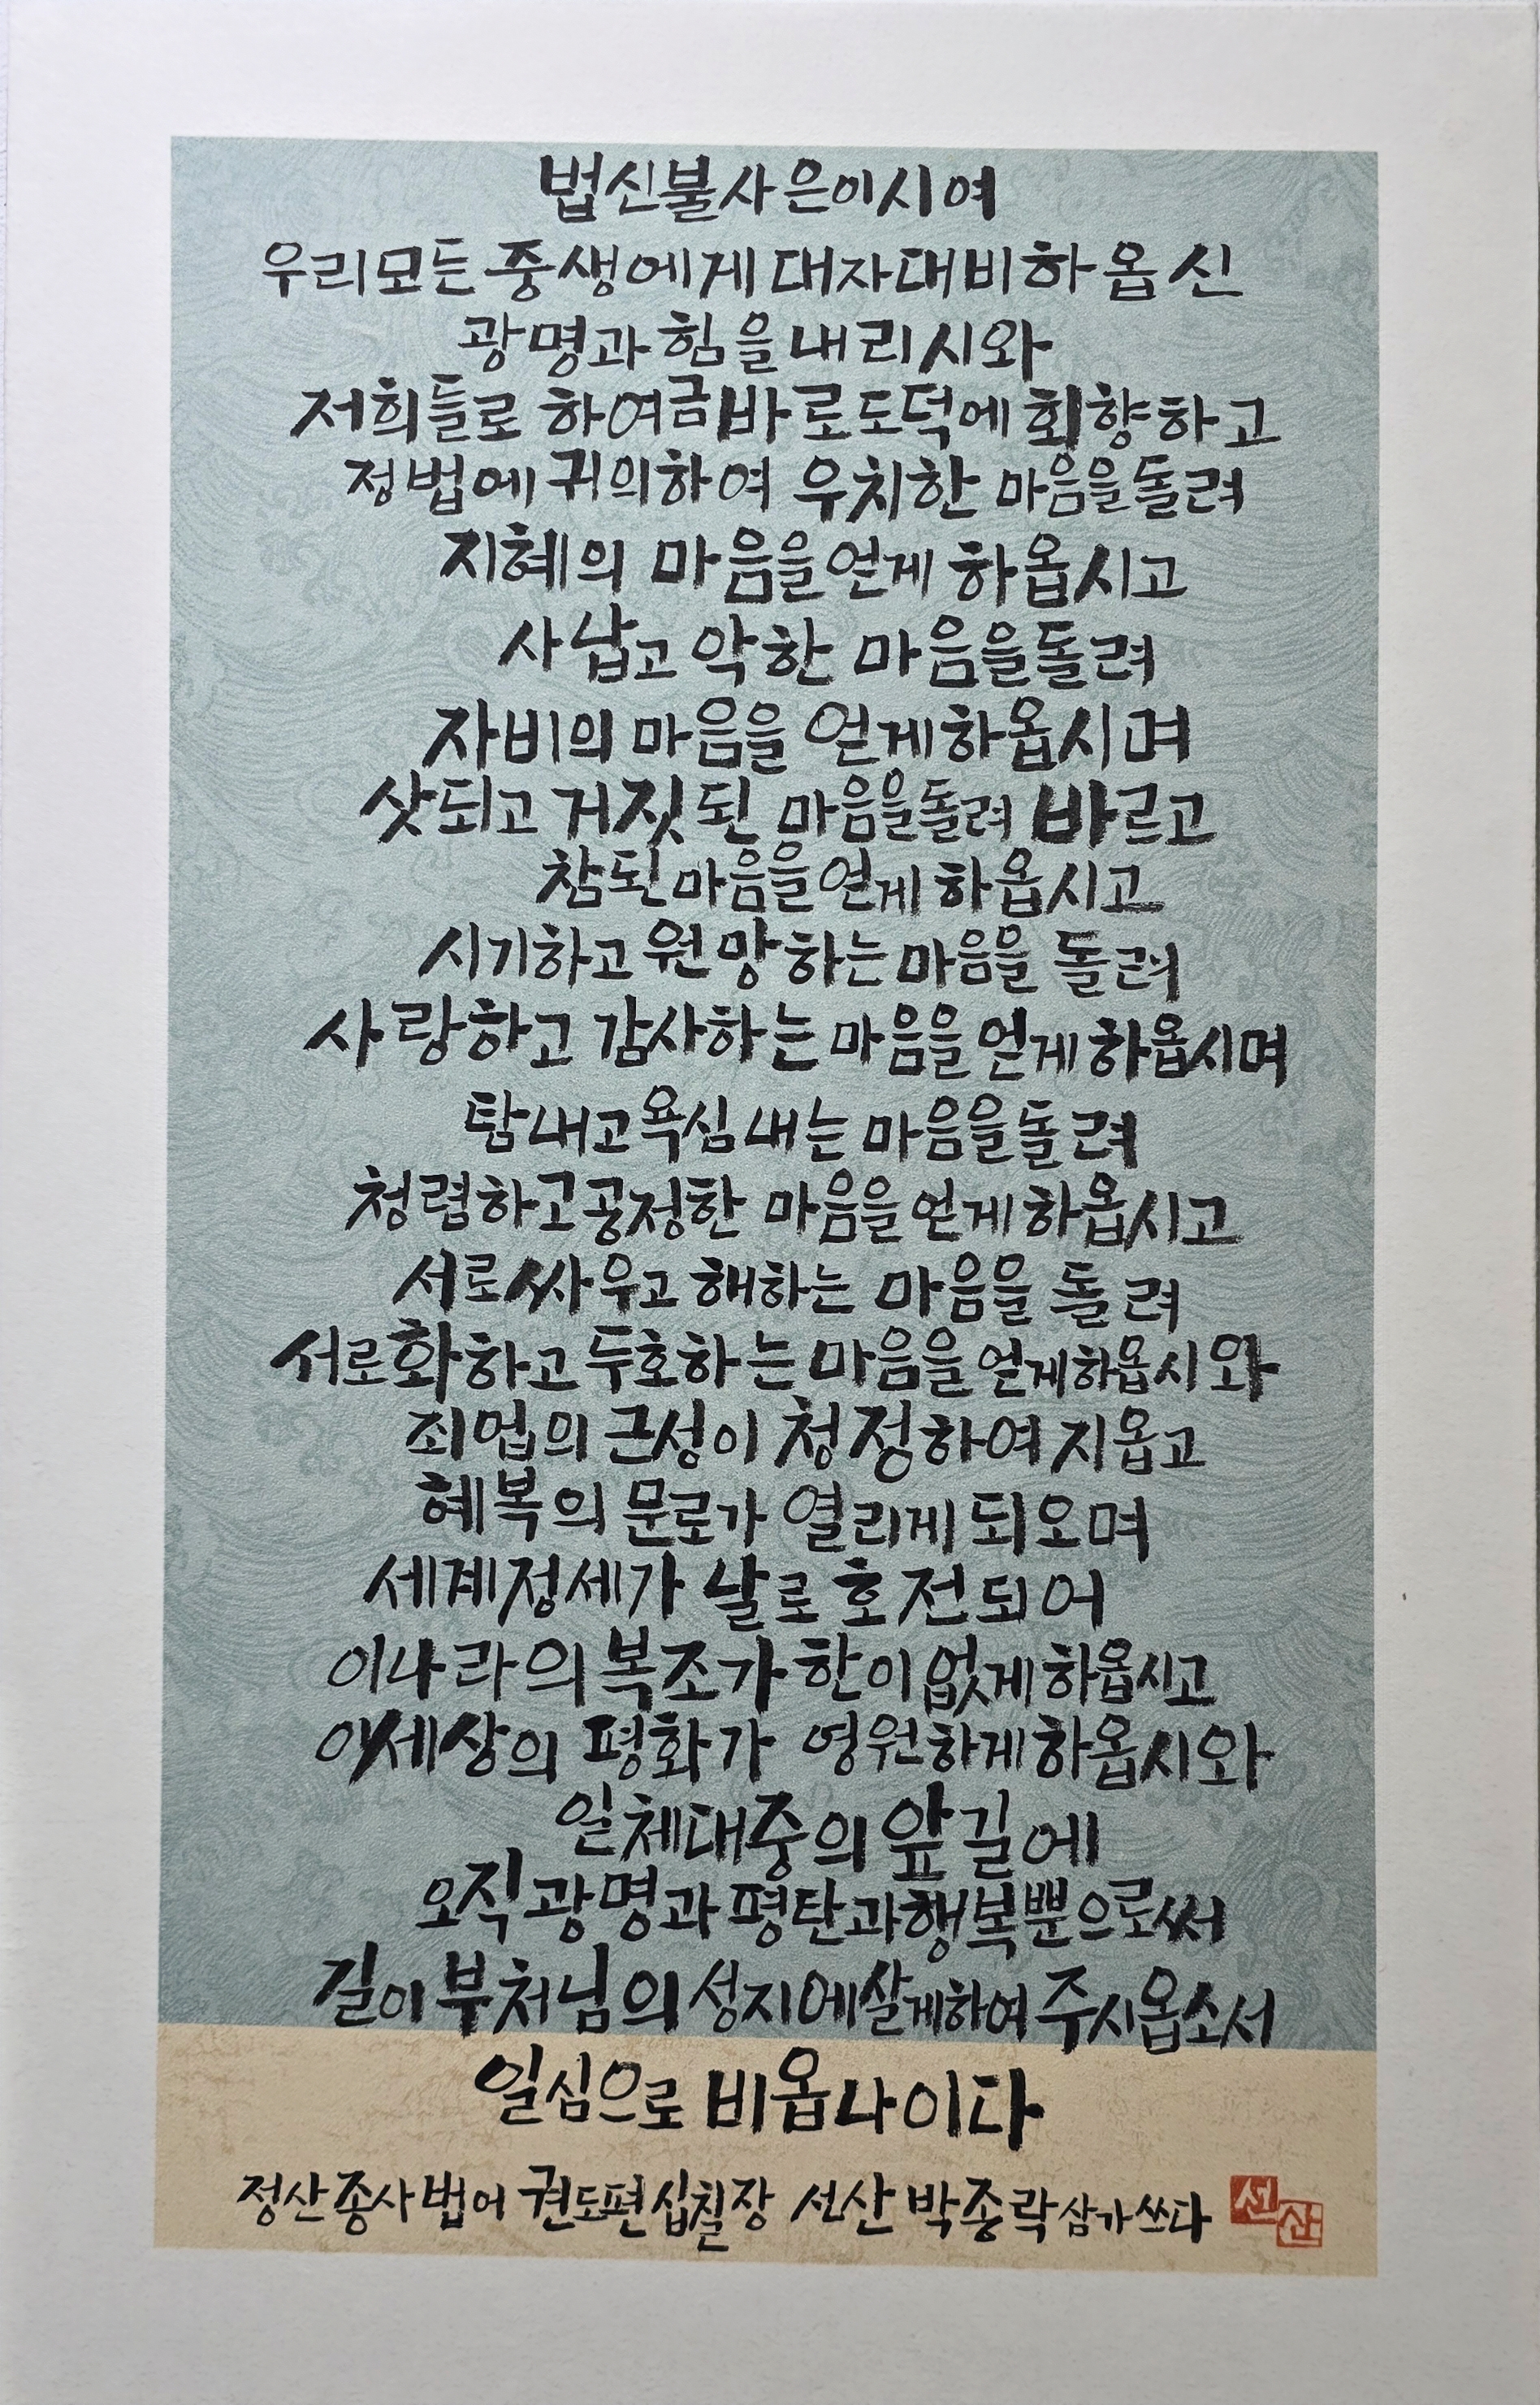 법신불사은이시여
우리모든 중생에게 대자대비하옵신
광명과 힘을 내리시와
저희들로 하여금 바로 도덕에 회향하고
정법에 귀의하여 우치한 마음을 돌려
지혜의 마음을 얻게 하옵시고
사납고 악한 마음을 돌려
자비의 마음을 얻게 하옵시며
삿되고 거짓된 마음을 돌려 바르고
참된 마음을 얻게 하옵시고
시기하고 원망하는 마음을 돌려
사랑하고 감사하는 마음을 얻게 하옵시며
탐내고 욕심내는 마음을 돌려
청렴하고 공정한 마음을 얻게 하옵시고
서로 싸우고 해하는 마음을 돌려
서로 화하고 두호하는 마음을 얻게 하옵시와
죄업의 근성이 청정하여지옵고
혜복의 문로가 열리게 되오며
세계정세가 날로 호전되어
이 나라의 복조가 한이 없게 하옵시고
이 세상의 평화가 영원하게 하옵시와
일체대중의 앞길에
오직 광명과 평탄과 행복뿐으로써
길이 부처님의 성지에 살게하여 주시옵소서
일심으로 비옵나이다
정산종사법어 권도편 십칠장 선산 박종락 삼가 쓰다 선산